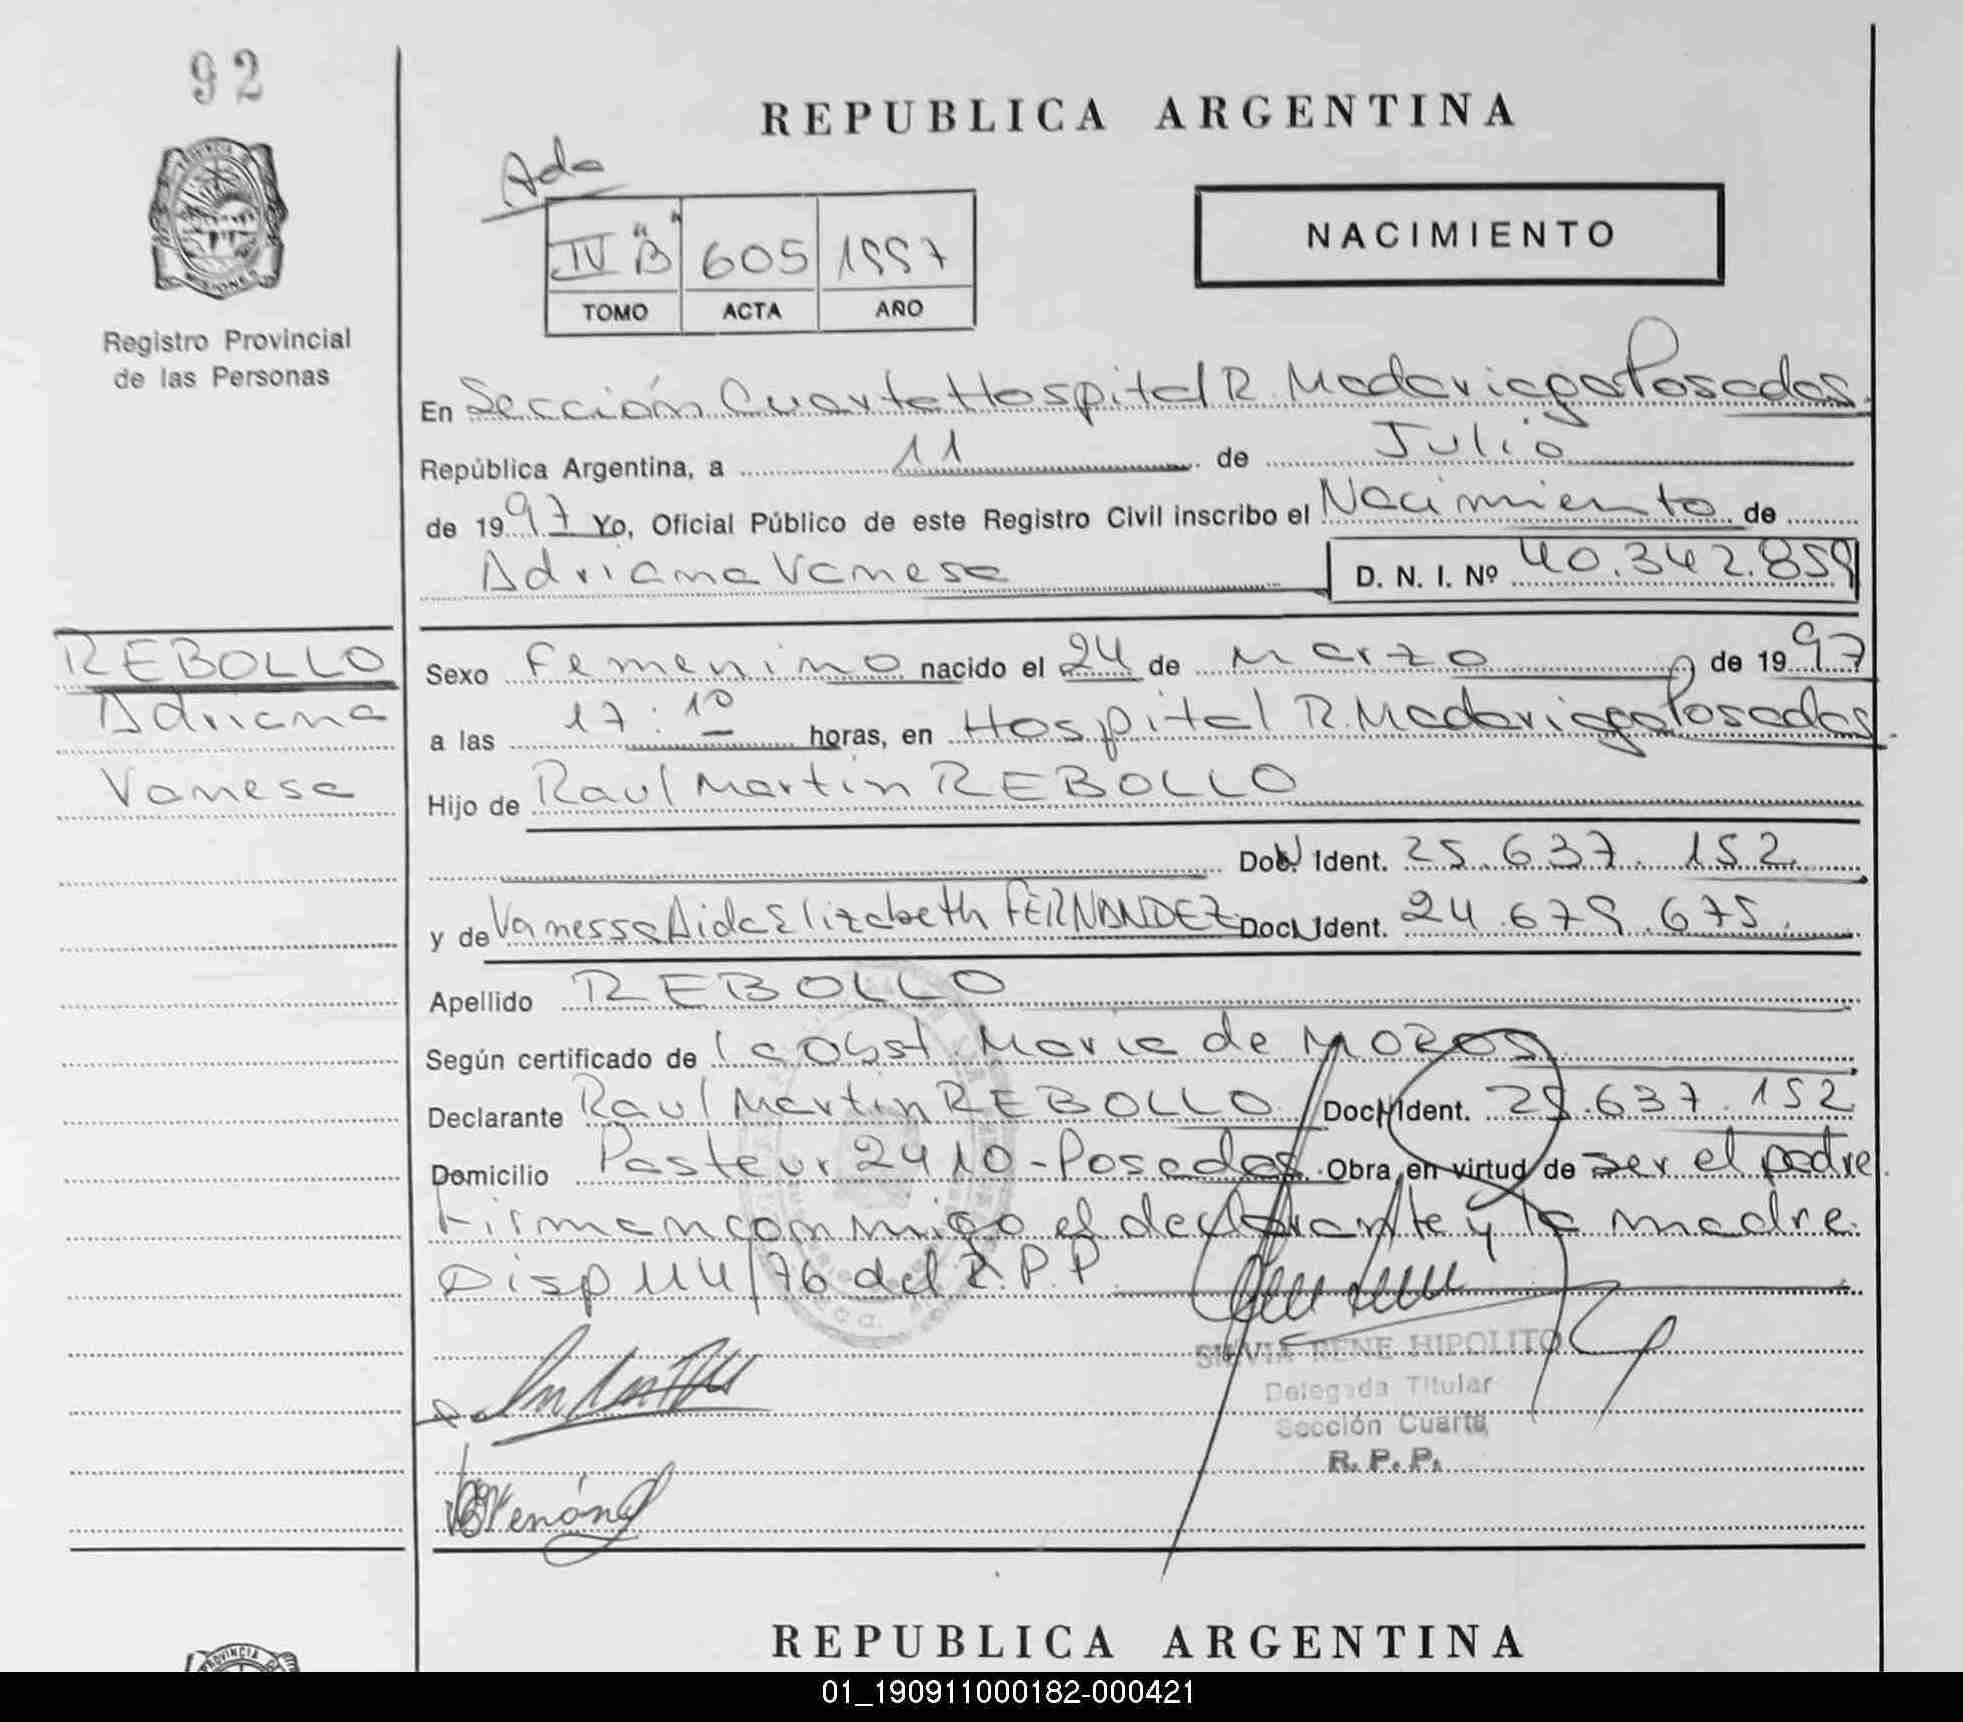 92
REPUBLICA ARGENTINA
Ada
IV "B" 605 1997
TOMO ACTA AÑO
NACIMIENTO
Registro Provincial
de las Personas
En Sección Cuarta Hospital R. Madariaga Posadas.
República Argentina, a 11 de Julio
de 1997 Yo, Oficial Público de este Registro Civil inscribo el Nacimiento de
Adriana Vanesa D. N. I. Nº 40.342.859
REBOLLO
Adriana
Vanesa
Sexo Femenino nacido el 24 de Marzo de 1997
a las 17:10 horas, en Hospital R. Madariaga Posadas.
Hijo de Raul Martin REBOLLO
Doc. Ident. 25.637.152
y de Vanessa Aida Elizabeth FERNANDEZ Doc. Ident. 24.679.675.
Apellido REBOLLO
Según certificado de la Obst. Maria de MOROS
Declarante Raul Martin REBOLLO Doc. Ident. 25.637.152
Domicilio Pasteur 2410-Posadas. Obra en virtud de ser el padre.
Firman conmigo el declarante y la madre.
Disp 114/76 del R.P.P.
SILVIA RENE HIPOLITO
Delegada Titular
Sección Cuarta
R. P. P.
REPUBLICA ARGENTINA
01_190911000182-000421